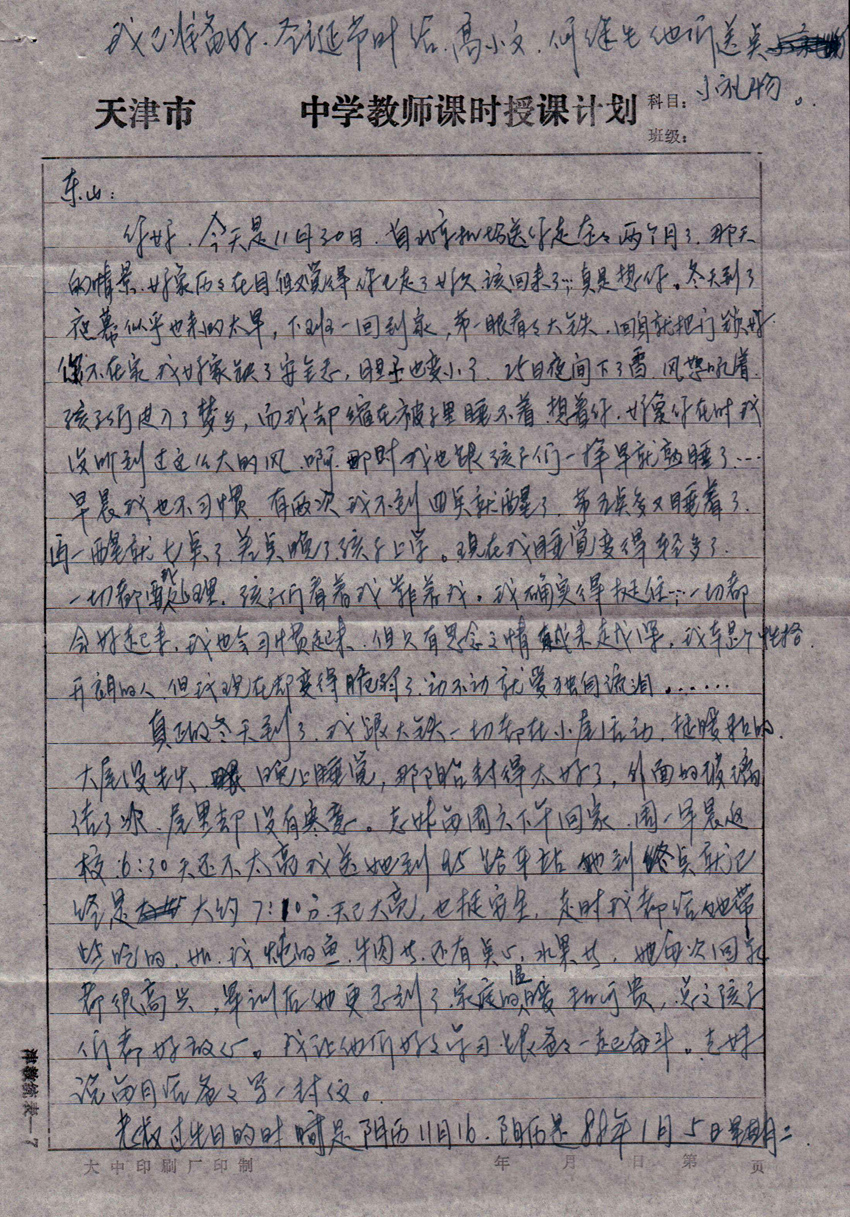 我已准备好.圣诞节时给.高小文.何继先他们送点
小礼物。
天津市 中学教师课时授课计划 科目:
班级:
东山:
你好.今天是11月30日.自北京机场送你走 两个月了.那天
的情景.好象历历在目但又觉得你已走了好久.该回来了…真是想你。冬天到了
夜幕似乎也来的太早,下班一回到家,第一眼看看大铁.回身就把门锁好
你不在家我好象缺了安全感,胆子也变小了.25日夜间下了雪.风怒吼着.
孩子们进入了梦乡,而我却缩在被子里睡不着.想着你.好象你在时我
没听到过这么大的风.啊.那时我也跟孩子们一样早就熟睡了…
早晨我也不习惯.有两次我不到四点就醒了.等五点多又睡着了.
再一醒就七点了.差点晚了孩子上学。现在我睡觉变得轻多了.
一切都要我处理.孩子们看着我靠着我。我确实得挺住…一切都
会好起来.我也会习惯起来.但只有思念之情越来越浓深.我本是个性格
开朗的人.但我现在却变得脆弱了.动不动就爱独自流泪……
真正的冬天到了.我跟大铁一切都在小屋活动.挺暖和的.
大屋没生火.晚上睡觉,那阳台封得太好了,外面的玻璃
结了冰.屋里却没有寒意。志妹每周六下午回家.周一早晨返
校.6:30天还不太亮我送她到95路车站她到终点就已
经是大约7:10分.天已大亮,也挺安全,走时我都给她带
些吃的.如.我炖的鱼.牛肉等.还有点心.水果等.她每次回家
都很高兴,军训后她更感到了家庭的温暖和可贵,总之孩子
们都好放心。我让他们好好学习跟爸爸一起奋斗。志妹
说每月给爸爸写一封信。
老叔过生日的时 是阴历11月16.阳历是88年1月5日星期二
津教统表—7
大中印刷厂印制 年 月 日 第 页